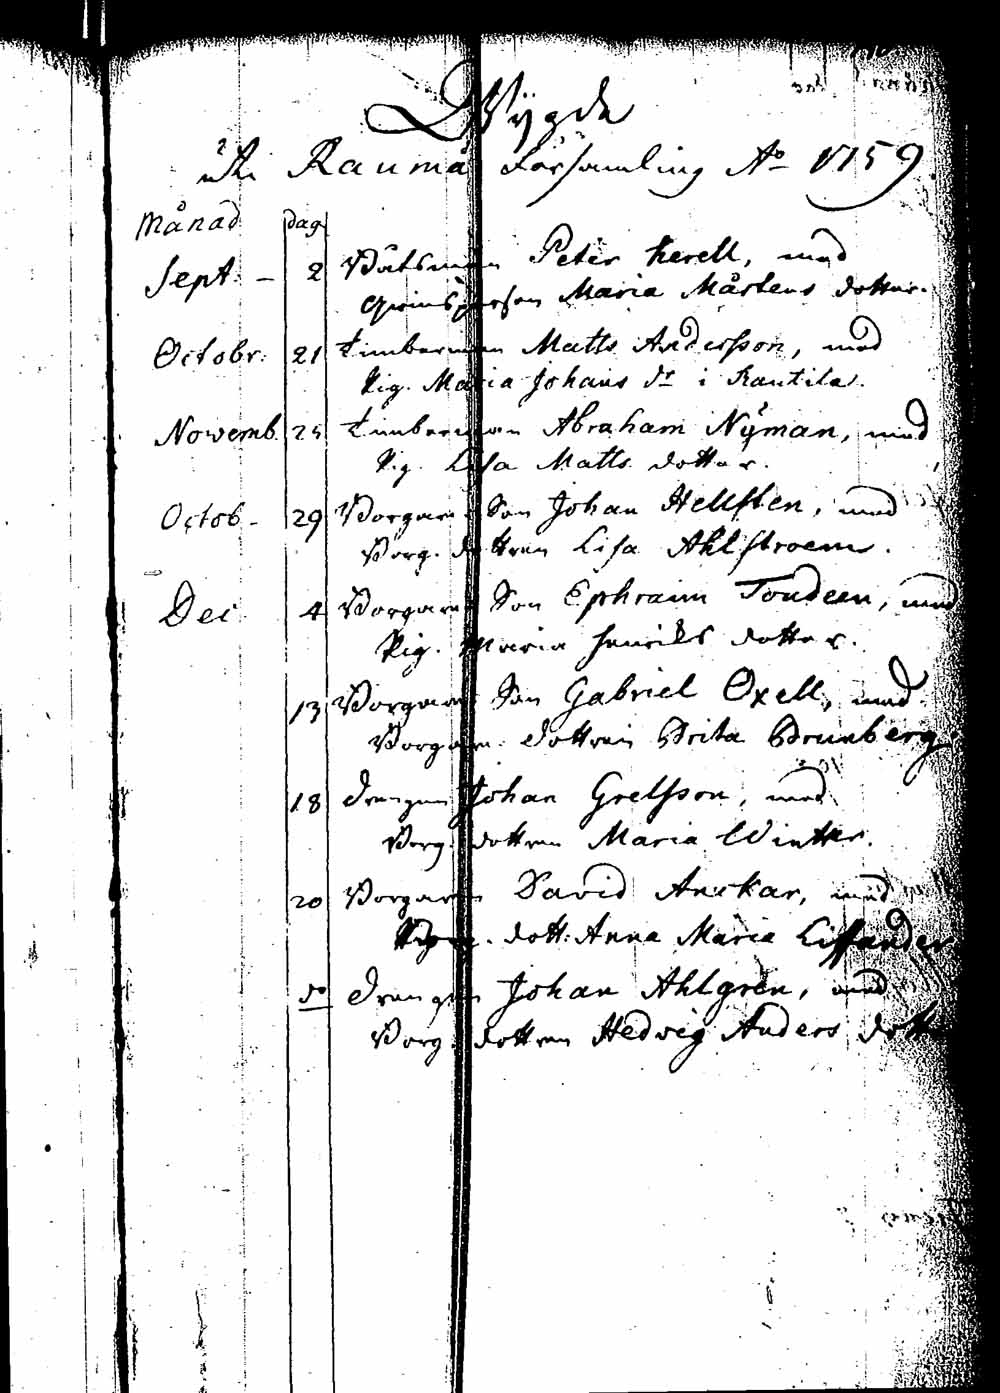 Wÿgde
uti Raumå Församling Ao 1759.
Månad dag
Sept. - 2 Båtsman Peter Kerell, med
Qwinspersson Maria Mårtens dotter.
Octobr. 21 Timberman Matts Andersson, med
Pig. Maria Johans dr i Rautila.
Novemb. 25 Timberman Abraham Nÿman, med
Pig. Lisa Matts dotter.
Octob - 29 Borgare Son Johan Hellsten, med
Borg. dottren Lisa Ahlstroem.
Dec 4 Borgare Son Ephraim Tondeen, med
Pig. Maria Henriks dotter.
13 Borgare Son Gabriel Oxell, med
Borgare dottren Brita Brunberg.
18 Drengen Johan Grelsson, med
Borg. dottren Maria Winter.
20 Borgaren David Anckar, med
dott: Anna Maria Lissander
do Drengen Johan Ahlgrén, med
Borg. dottren Hedvig Anders dott